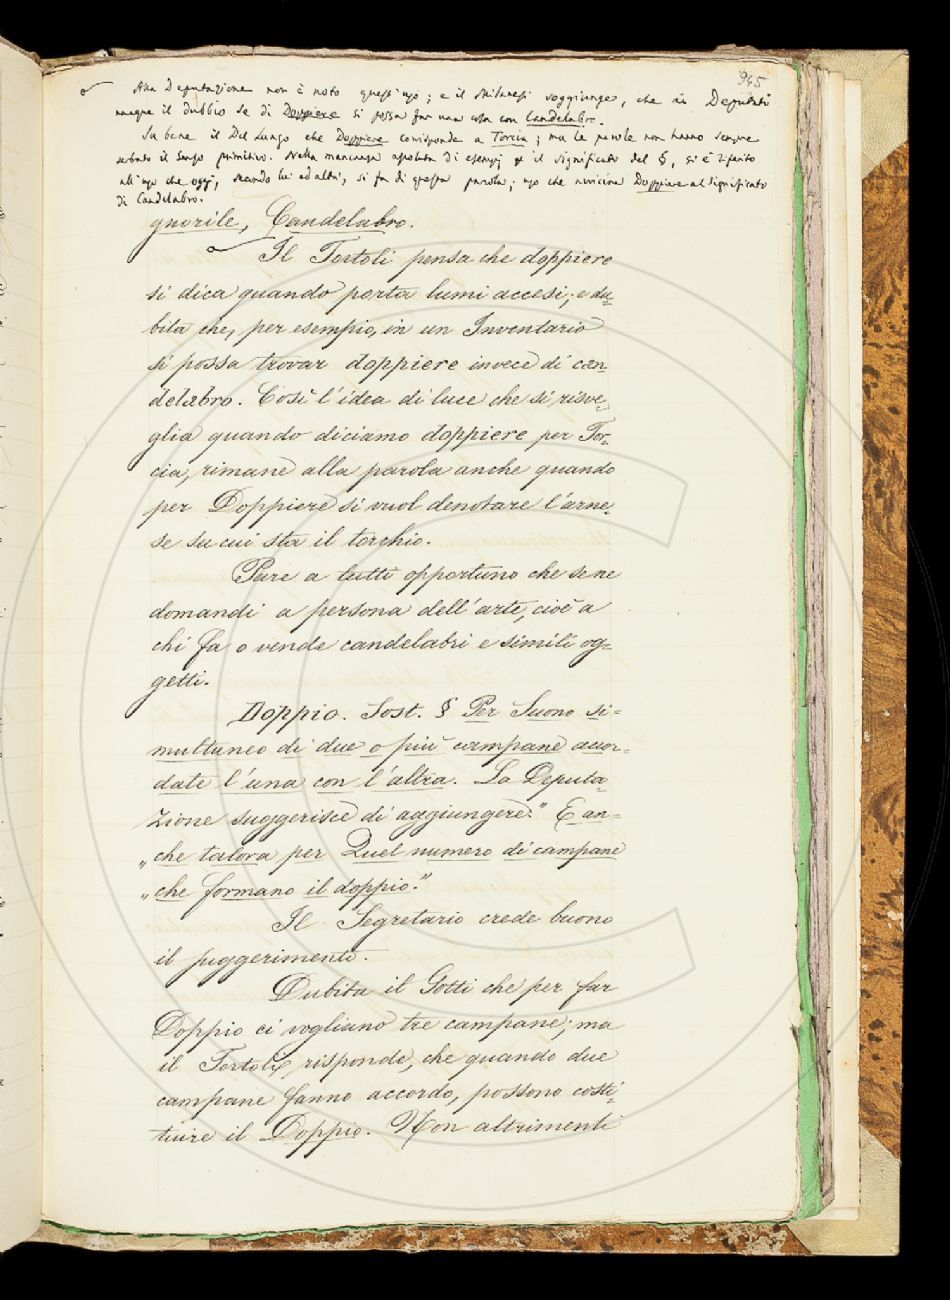 945
Alla Deputazione non è noto quest'uso; e il Milanesi soggiunge, che ai Deputati
nacque il dubbio se di Doppiere si possa far una cosa con Candelabro.
Sa bene il Del Lungo che Doppiere corrisponde a Torcia; ma le parole non hanno sempre
serbato il senso primitivo. Nella mancanza assoluta di esempj il significato del §, si è riferito
all'uso che oggi, secondo lui ed altri, si fa di questa parola; uso che avvicina Doppiere al significato
di Candelabro.
gnorile, Candelabro.
Il Tortoli pensa che doppiere
si dica quando porta lumi accesi; e du=
bita che, per esempio, in un Inventario
si possa trovar doppiere invece di can=
delabro. Così l'idea di luce che si risve=
glia quando diciamo doppiere per Tor=
cia, rimane alla parola anche quando
per Doppiere si vuol denotare l'arne=
se su cui sta il torchio.
Pare a tutti opportuno che se ne
domandi a persona dell'arte, cioè a
chi fa o vende candelabri e simili og=
getti.
Doppio. Sost. § Per Suono si=
multaneo di due o più campane accor=
date l'una con l'altra. La Deputa=
zione suggerisce di aggiungere: "E an=
„che talora per Quel numero di campane
„che formano il doppio."
Il Segretario crede buono
il suggerimento.
Dubita il Gotti che per far
Doppio ci vogliano tre campane; ma
il Tortoli risponde, che quando due
campane fanno accordo, possono costi=
tuire il Doppio. Non altrimenti